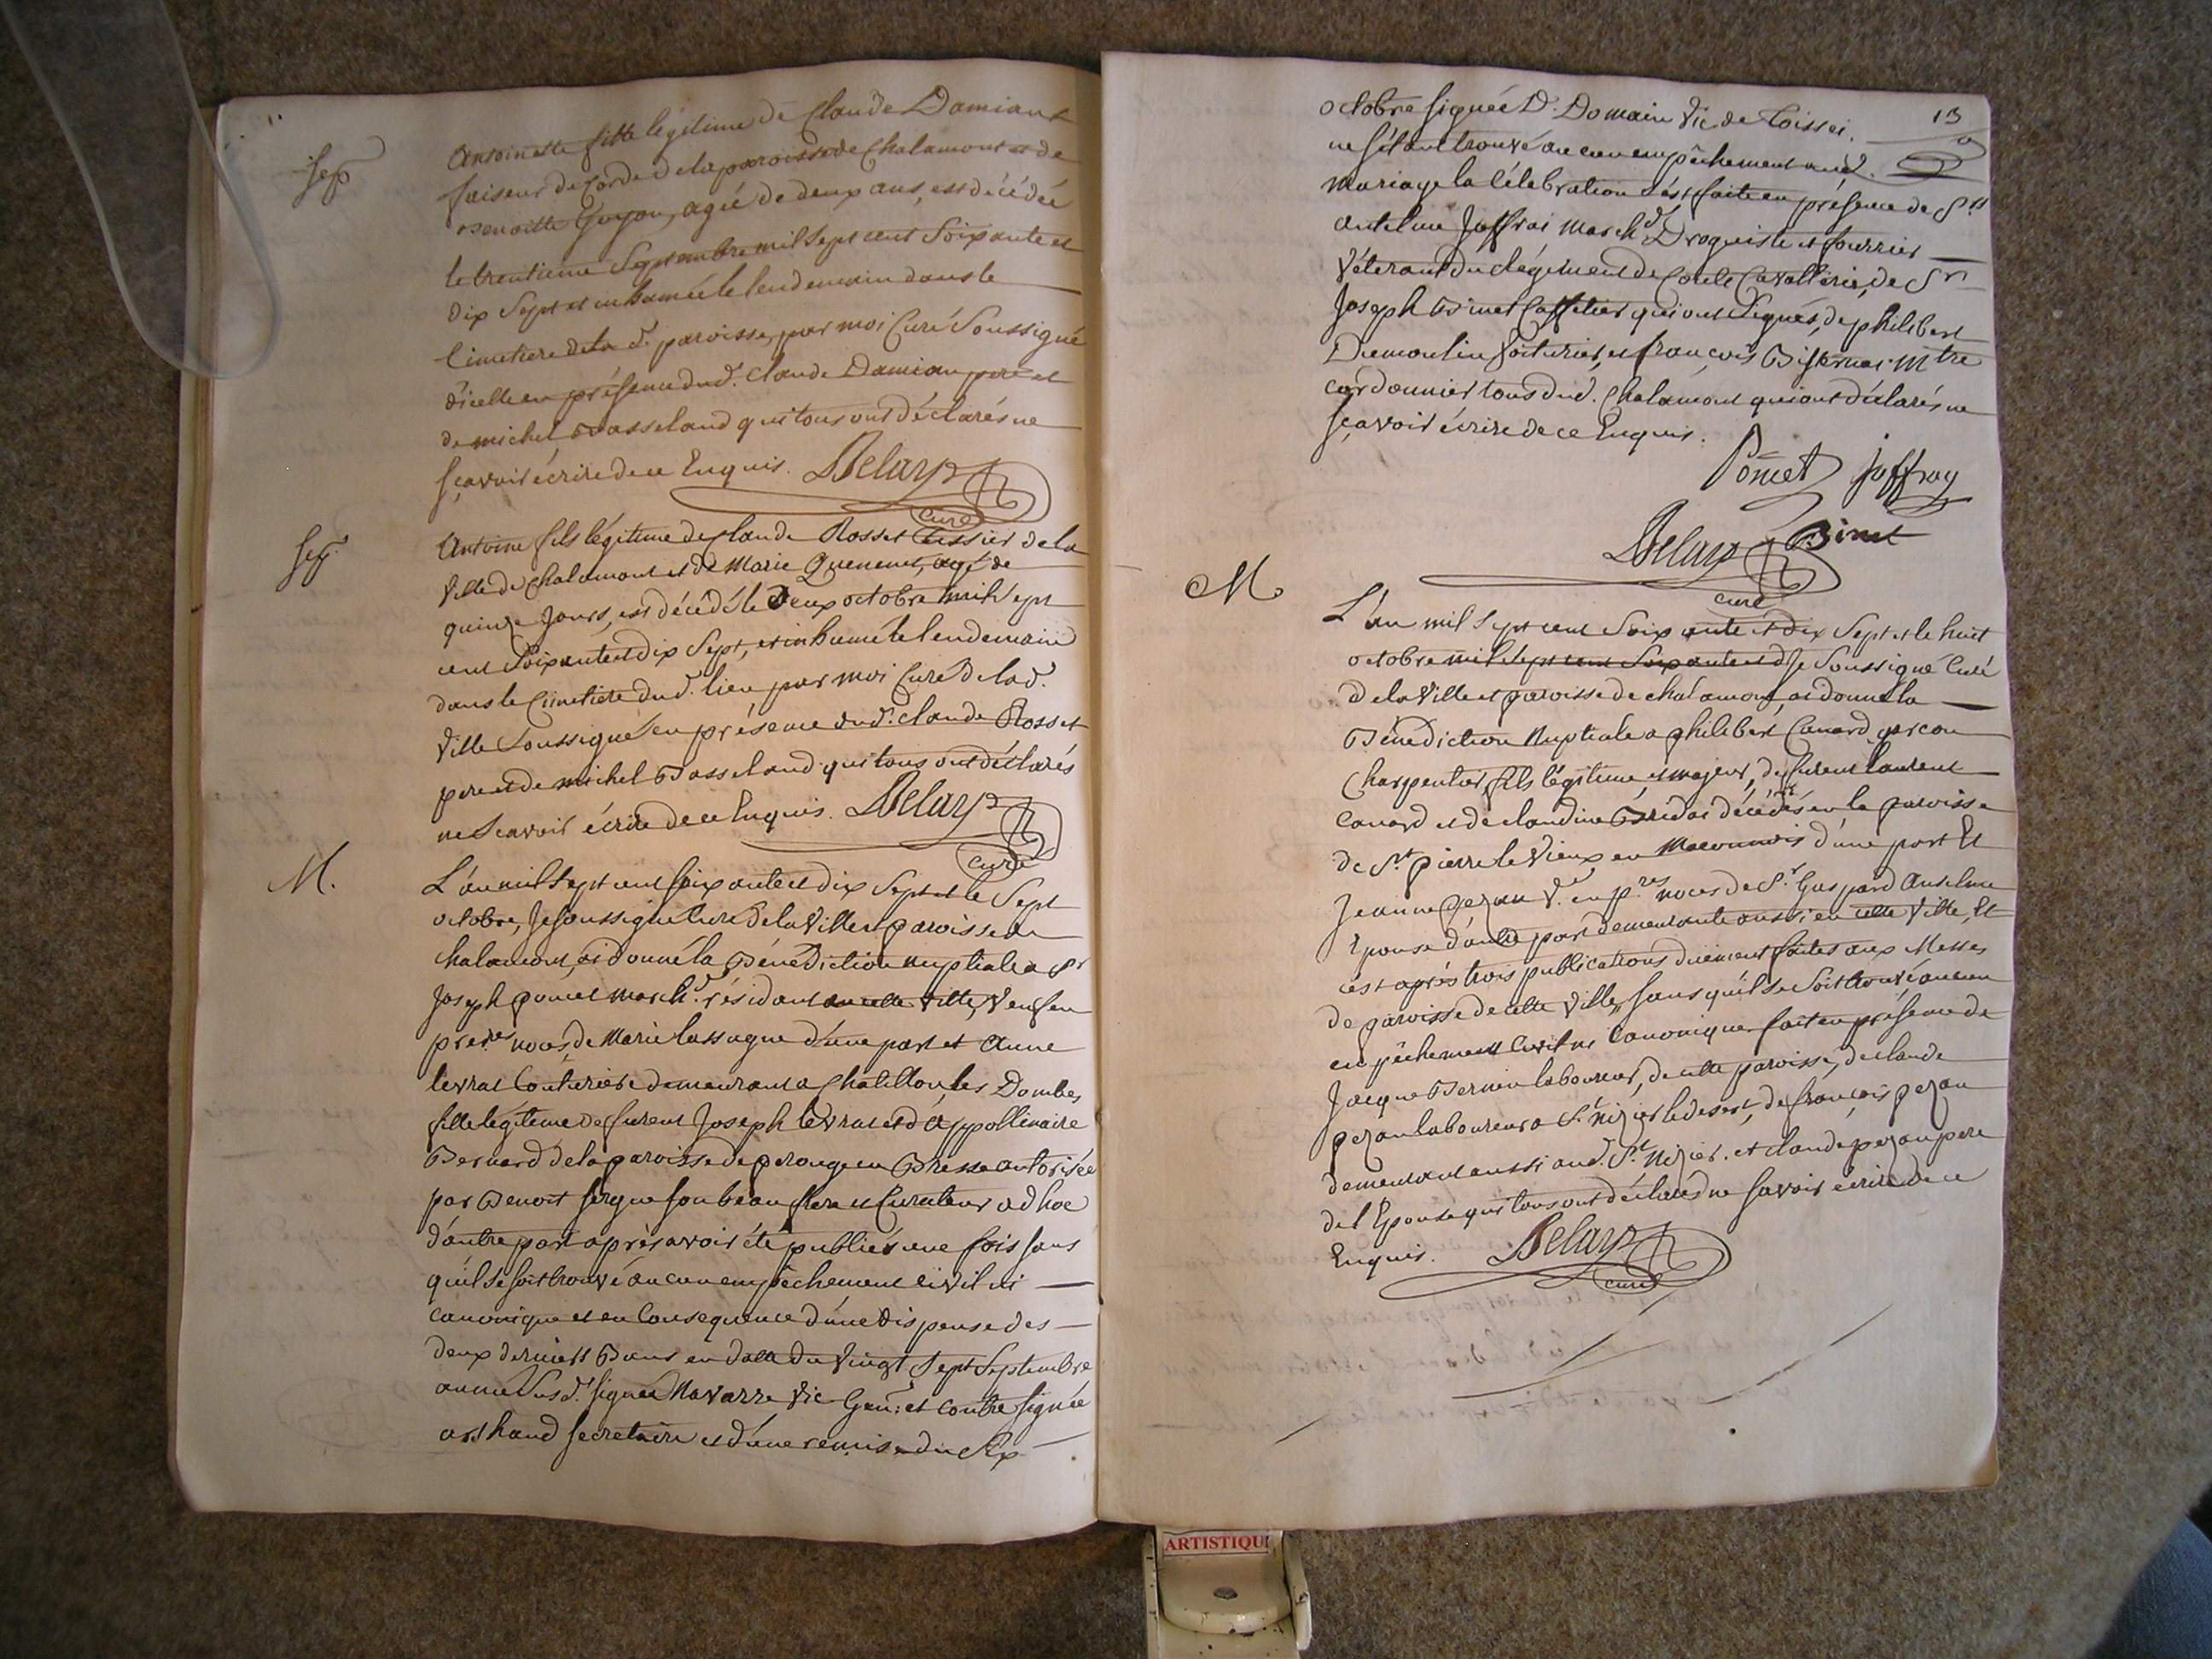 Sep
Antoinette fille légitime de Claude Damians
faiseur de corde de la paroisse de Chalamont et de
Benoitte Guyon, agée de deux ans, est décédée
le trentieme Septembre mil Sept cent Soixante et
dix Sept et inhumée le lendemain dans le
Cimetiere de la d. paroisse, par moi Curé Soussigné
d'icelle en présence dud. Claude Damian pere et
de michel Basseland qui tous ont déclarés ne
sçavoir écrire de ce Enquis. Delarp
curé
Sep.
Antoine fils légitime de Claude Rosset tissier de la
Ville de Chalamont et de Marie Quenenet, agé de
quinze Jours, est décédé le Deux octobre mil Sept
cent Soixante et dix Sept, et inhumé le lendemain
dans le Cimetiere dud. lieu par moi Curé de lad.
Ville Soussigné en présence dud. Claude Rosset
pere et de michel Basseland qui tous ont déclarés
ne Scavoir écrire de ce Enquis. Delarp
curé
M.
L'an mil Sept cent soixante et dix Sept et le Sept
octobre, Je soussigné Curé de la Ville et paroisse de
Chalamont, ai donné la Bénédiction nuptiale a Sr
Joseph poncet march.d résidant en cette Ville, Veuf en
preres noces de Marie lassagne d'une part et Anne
levrat Couturiere demeurant a Chatillon les Dombes
fille légitime de furent Joseph levrat et d'Appollinaire
Bernard de la paroisse de perouge en Bresse autorisée
par Benoit sergue son beau frere et Curateur ad hoc
d'autre part après avoir été publiés une fois sans
qu'il se soit trouvé aucun empêchement civil ni
canonique et en Consequence d'une dispense des
deux derniers Bans en datte du Vingt Sept Septembre
année Susd. signée Navarre Vic. Gen: et contre signée
arthaud secretaire et d'une remise du Six
13
octobre signée D. Domain Vic de Toissei.
ne s'étant trouvé aucun empêchement aud.
mariage la Célébration s'est faite en présence de Srs
antelme Joffrai march.d Droguiste et fourrier
Véterant du Régiment de Cavallerie, de Sr
Joseph Binet Caffetier qui ont Signés, de philibert
Dumoulin Voiturier, et françois Bifternai Mtre
cordonnier tous dud. Chalamont qui ont déclarés ne
sçavoir écrire de ce Enquis.
Poncet Joffray
Delarp Binet
curé
M.
L'an mil Sept cent Soixante et dix Sept et le huit
octobre mil Sept cent Soixante et d Je Soussigné Curé
de la Ville et paroisse de chalamont, ai donné la
Bénédiction Nuptiale a philibert Canard garcon
Charpentier, fils légitime, et majeur, de furent laurent
Canard et de claudine Bridai décédés en la paroisse
de St. pierre le Vieux en Maconnois d'une part Et
Jeanne pezan Ve. en pres noces de Sr. Gaspard Anselme
Epouse d'autre part demeurante aussi en cette Ville, Et
cest après trois publications duement faites aux Messes
de paroisse de cette Ville, sans qu'il se Soit trouvé aucun
empêchement Civil ni Canonique fait en présence de
Jacque Bernin laboureur, de cette paroisse, de Claude
pezan laboureur a St. nizier le desert, de françois pezan
demeurant aussi aud. St. Nizier. et claude pezan pere
de l'Epouse qui tous ont déclarés ne savoir écrire de ce
Enquis. Delarp
curé
ARTISTIQU